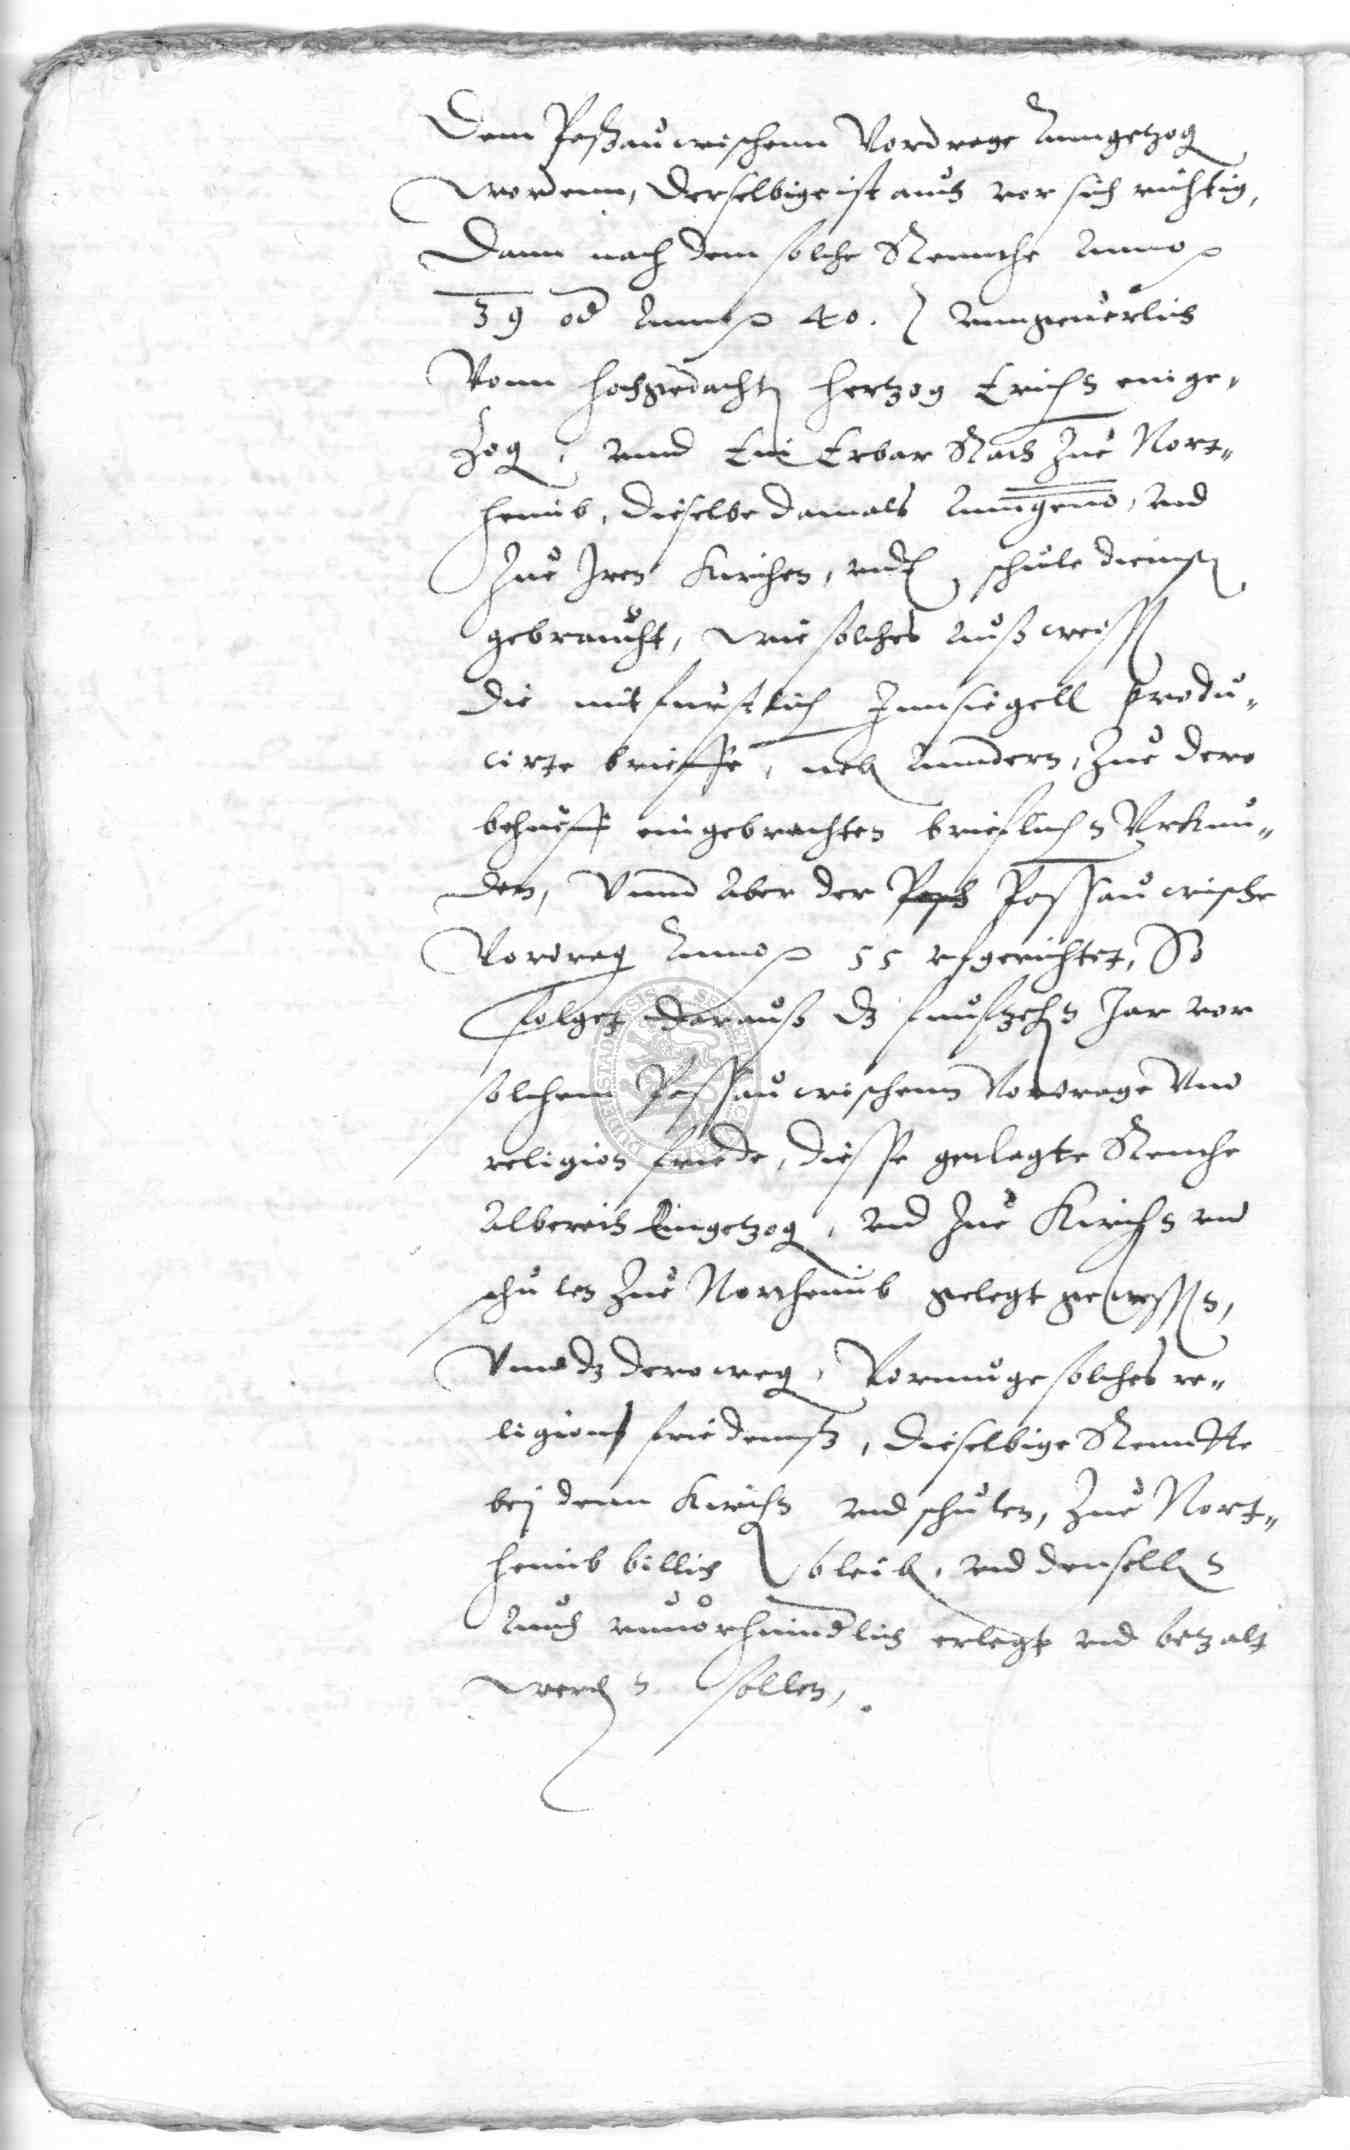 Dem Passauwischenn Vordrage Anngetzog
wordenn, derselbige ist auch vor sich richtig,
Dann nach dem solche Rennthe Anno
39 od Anno 40. unngeuerlich
Vonn hochgedacht hertzog Erichs einge-
zog, unnd Ein Erbar Rath Zue Nort-
heimb, dieselbe damals Anngeno, und
Zue Iren Kirchen, und schule dienst
gebraucht, wie solches Außweiss
die mit furstlich Innsiegell produ-
cirte brieffe, neb Anndern, Zue dero
behueff eingebrachten brieflichn Urkun-
den, Unnd Aber der Passauwische
Vordrag Anno 55 ufgerichtet, So
folget darauß dz funfzehn Jar vor
solchem Passauwischenn Vordrage Und
religion friede, diesse geclagte Renthe
Albereit Eingetzog, und Zue Kirchn und
schulen Zue Northeimb gelegt gewessn,
Unnd dz deroweg, Vormuge solches re-
ligions friedenß, dieselbige Rennthe
bey denn Kirchn und schulen, Zue Nort-
heimb billich bleib, und denselbn
Auch unuorhindlich erlegt und betzalt
werdn sollen,